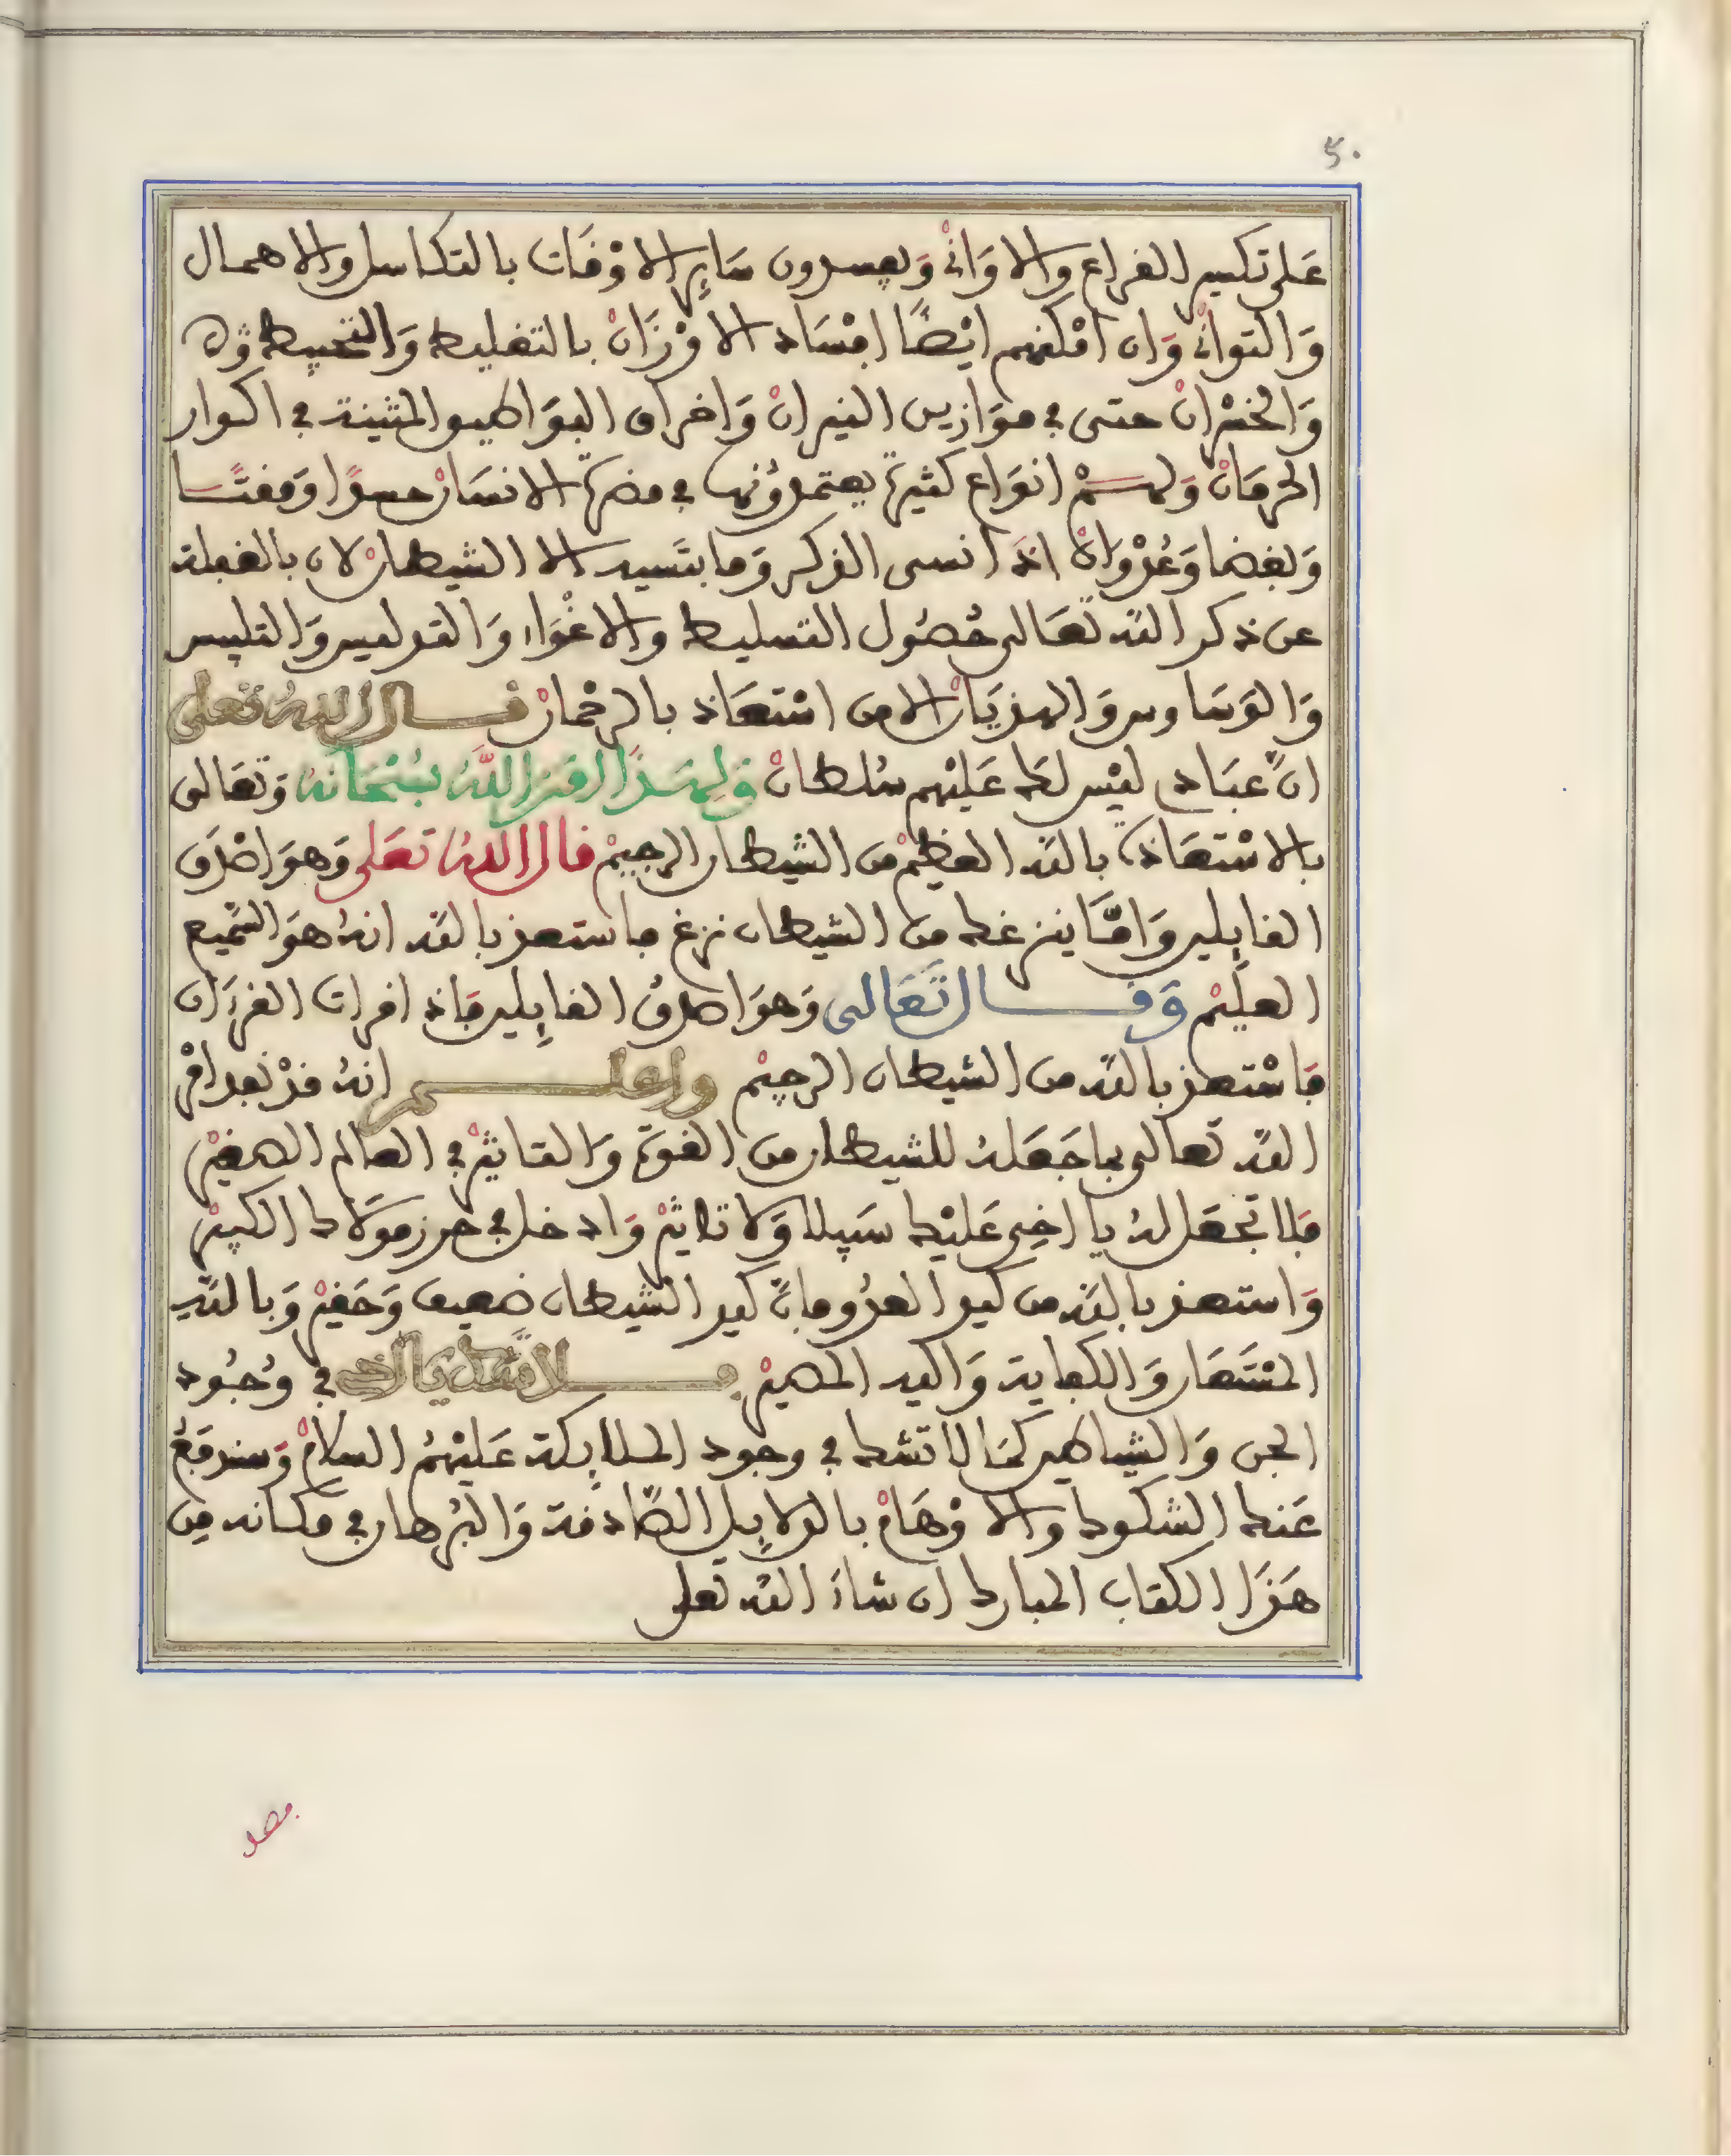 ٥٠
على تكسير القراع والاوَانِي وَيفسدون سَايِر الاوْقَات بالتكاسل والاهمال
وَالتواني وَان امْكنهم ايْضًا افْسَاد الاوْزَانْ بالتغليط وَالتخبيط
وَالخسْرانْ حتى في موَازين النيرانْ وَاخراق البوَاطيو المثينة في اكوار
الحرمَانْ وَلهــمْ انوَاع كثيرة يعتمدُونها في مضرة الانسَانْ حسدًا وَمقتًــا
وَبغضا وَعُدْوَانْ اذَا نسى الذكر وَما ينسيه الا الشيطانْ لان بالغفلة
عن ذكر الله تعَالى حُصُول التسليط والاغْوَاء وَالتدليس وَالتلبيس
وَالوَسَاوس وَالهذيَانْ الا من اسْتعَاذ بالرحْمانْ قــال الله تعلى
انَّ عبَادي ليْس لك عَليْهم سُلطانْ وَلِهــذَا امَرَ اللَّهُ سُبْحَانَهُ وَتَعَالى
بالاسْتعَاذة بالله العظيمْ من الشيطان الرجيمْ قال الله تعَلى وَهوَ اصْدَق
القايِلين وَامَّا ينزغنك من الشيطان نزغ فاستعذ بالله انهُ هوَ السَّميع
العليْم وَقـــال تَعَالى وَهوَ اصدقُ القايِلين فَاذا قرات القرءَان
فَاسْتعذ بالله من الشيطان الرجيْم واعلـــم انهُ قدْ نفد امْر
الله تعالى بما جَعَلهُ للشيطان من القوة وَالتاثيْر في العالم الصغيْر
فَلا تجعَل لهُ يا اخِي عَليْك سَبيلا وَلا تاثيْر وَادخل في حرز موَلاك الكبيْر
وَاستعذ بالله من كيد العدُو فانَّ كيد الشيطان ضعيف وَحَقيْر وَبالله
المسْتَعَان وَالكفاية وَاليه المصيْر فـــلا تشك يا اخي في وُجُود
الجن وَالشياطين كمَا لا تشك في وجود الملايكة عَليْهمُ السلامْ وَسنرفعُ
عَنك الشكوك والاوْهَامْ بالدلايِل الصَّادقة وَالبُرهان في مكانه مِن
هَذَا الكتاب المبارك ان شاءَ الله تعلى